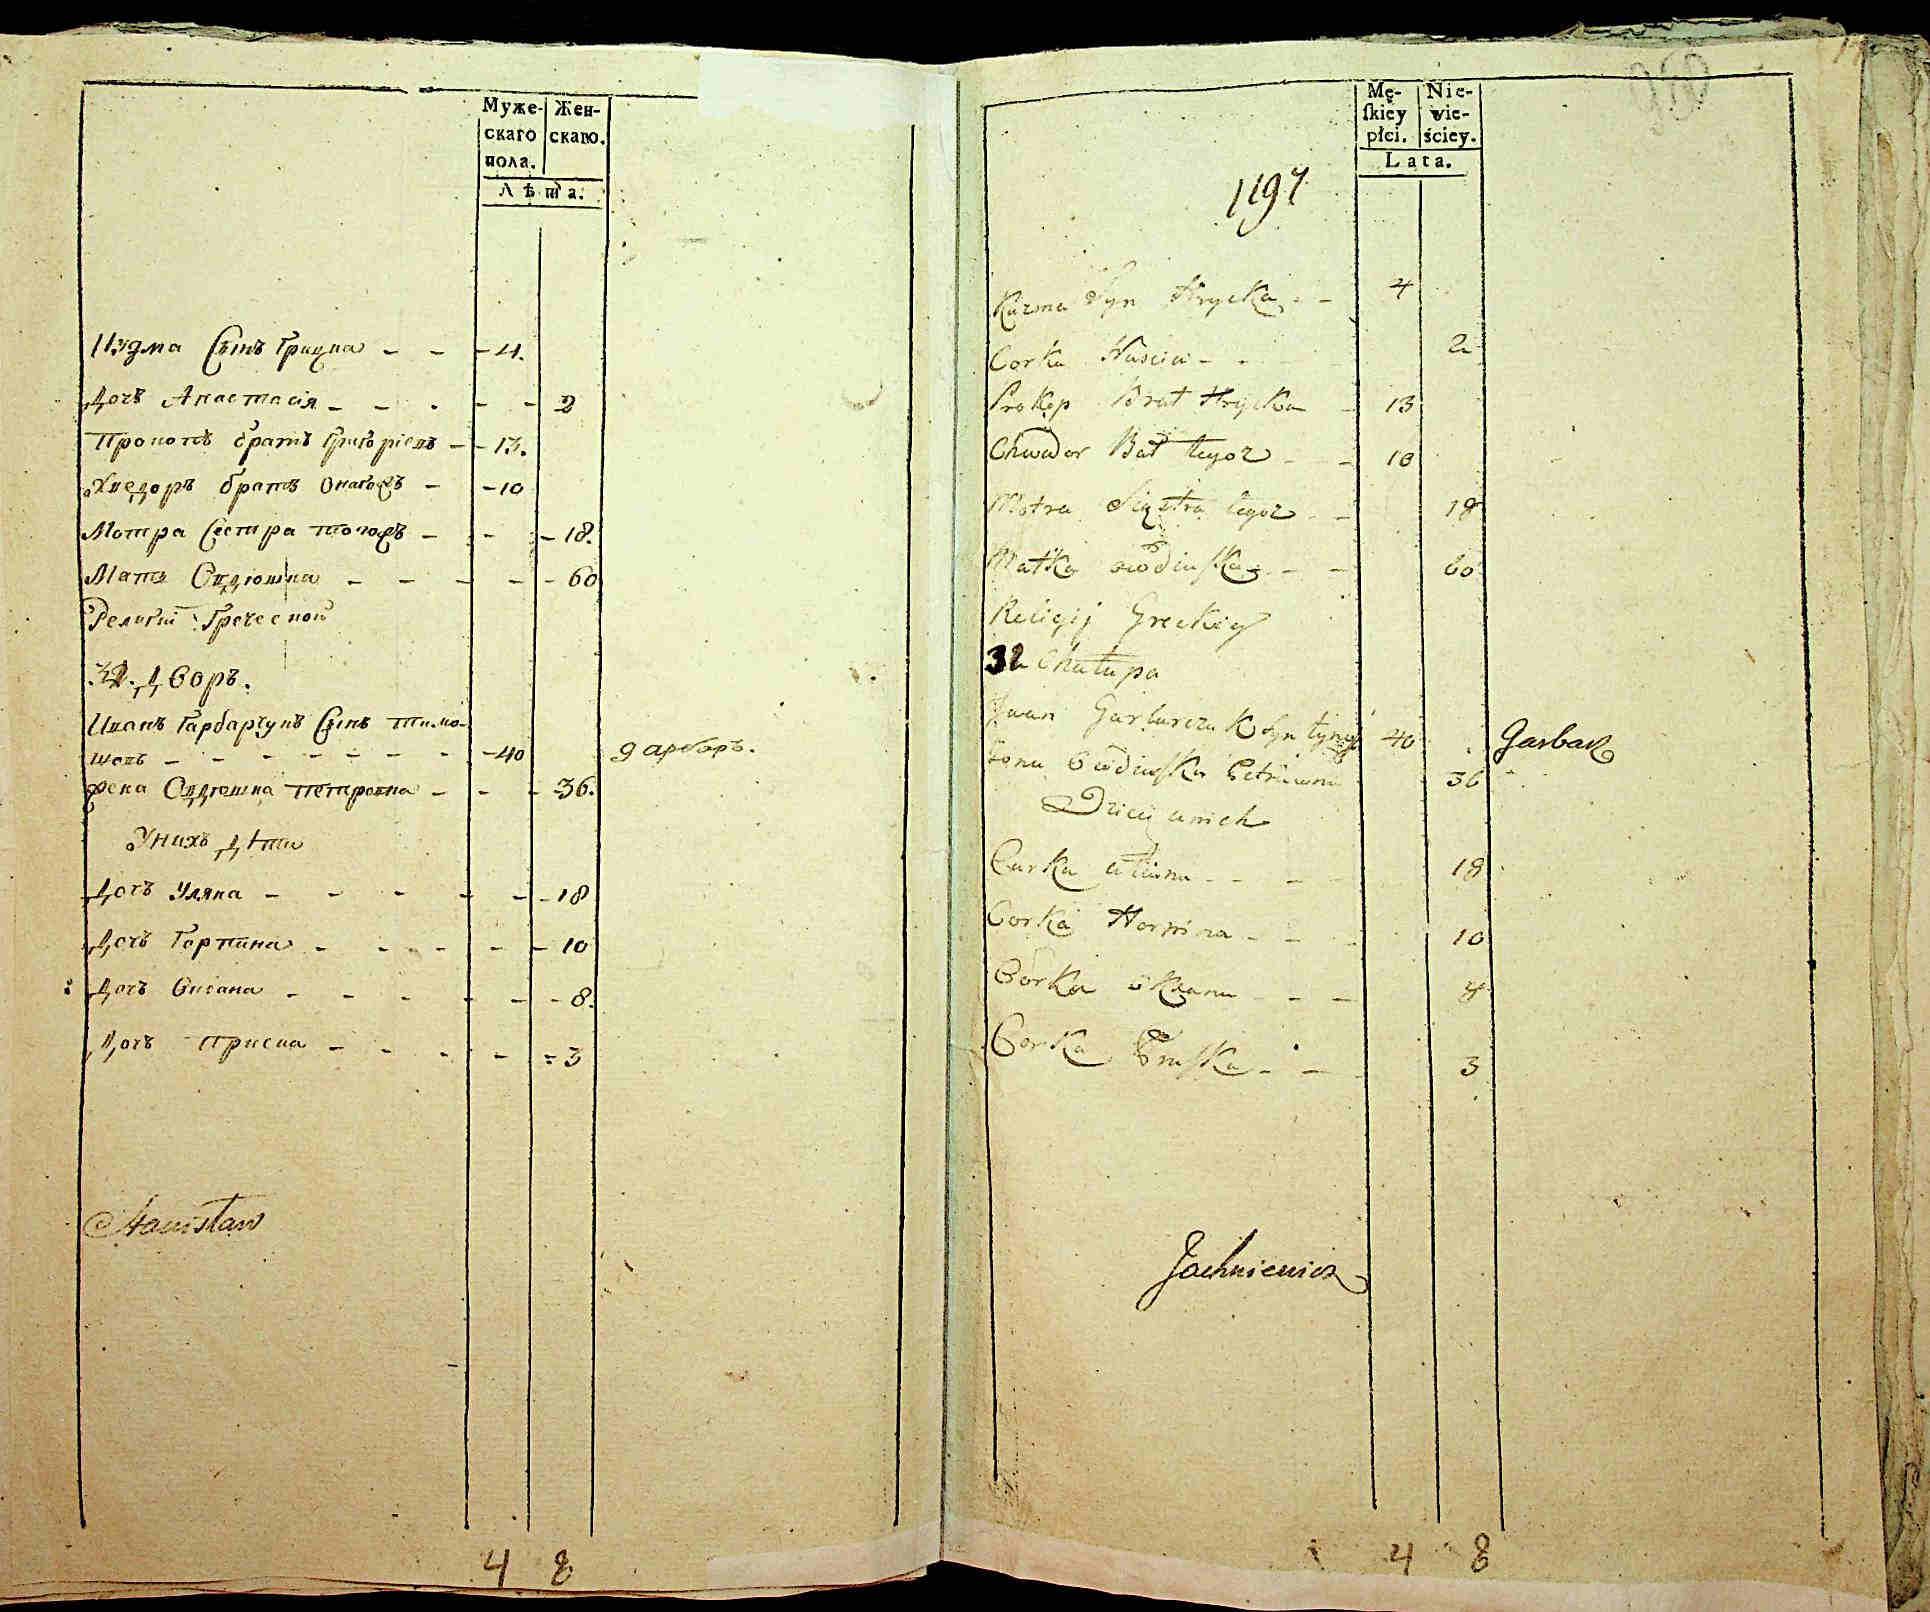 Муже-
скаго
пола.
Жен-
скаго.
Лѣта.
Кузма Сынъ Грицка - - - 4.
Дочъ Анастасія - - - - - 2
Прокопъ братъ Григоріевъ - - 13.
Хведоръ братъ - - 10
Мотра Сестра тогожъ - - - 18.
Мать Вдюшка - - - - - 60
Религіи Греческой
32. Дворъ.
Иванъ Гарбарчукъ Сынъ Тимо-
шевъ - - - - - - - 40 гарбаръ.
Жена Петровна - - - 36.
Унихъ Дѣти
Дочъ Уляна - - - - - - 18
Дочъ Горпина - - - - - - 10
Дочъ Оксана - - - - - - 8.
Дочъ Приска - - - - = 3
Stanisław
4 8
Mę-
ſkiey
płci.
Nie-
wie-
ściey.
Lata.
1197
Kuzma Syn Hrycka - - 4
Corka Nascia - - 2
Prokop Brat Hrycka - 13
Chwedor Bat tegoz - - 10
Motra Siestra tegoz - - 18
Matka - - 60
Religij Greckiey
32 Chałupa
Iwan Garbarczuk Syn 40 Garbarz
Zona 36
Dzieci unich
Curka - - - 18
Corka Horpina - - - 10
Corka Oksana - - - 8
Corka Pruſka - - 3
Jachniewicz
4 8